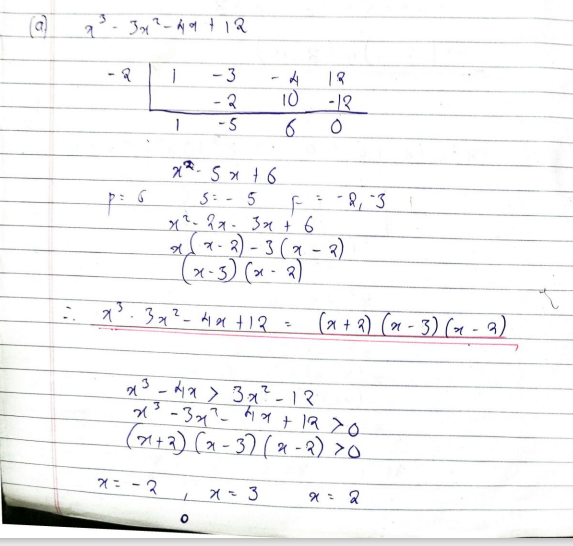 (a) x³ - 3x² - 4x + 12
-2 | 1 -3 -4 12
-2 10 -12
1 -5 6 0
x² - 5x + 6
p = 6 S = - 5 F = -2, -3
x² - 2x - 3x + 6
x(x - 2) - 3(x - 2)
(x - 3)(x - 2)
∴ x³ - 3x² - 4x + 12 = (x + 2)(x - 3)(x - 2)
x³ - 4x > 3x² - 12
x³ - 3x² - 4x + 12 > 0
(x + 2)(x - 3)(x - 2) > 0
x = - 2 , x = 3 x = 2
0